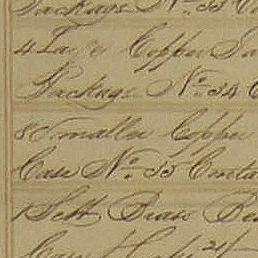 Package No. 33 Co
4 Large Copper Sa
Package No. 34 C
8 Smaller Copper
Case No. 35 Conta
1 Sett Brass Be